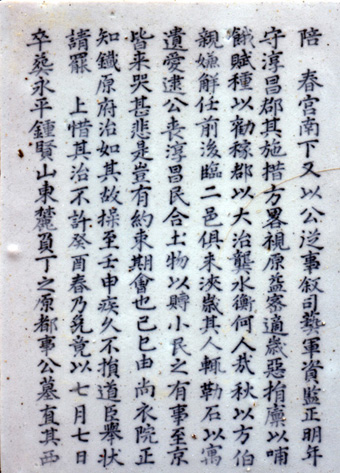 陪 春宮南下又以公從事叙司䆃軍資監正明年
守淳昌郡其施措方畧視原益密適歲惡捐廩以哺
餓賦種以勸稼郡以大治龔水衡何人㢤秋以方伯
親嫌解任前後臨二邑俱未浹歲其人輒勒石以寓
遺愛逮公喪淳昌民合土物以賻小民之有事至京
皆来哭甚悲是豈有約束期會也己巳由尚衣院正
知鐵原府治如其故操至壬申疾久不損道臣舉状
請罷 上惜其治不許癸酉春乃免竟以七月七日
卒葬永平鍾賢山東麓負丁之原都事公墓直其西